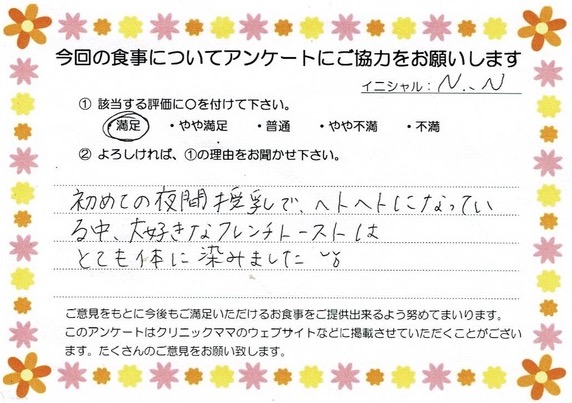 今回の食事についてアンケートにご協力をお願いします
イニシャル：N.、N
① 該当する評価に○を付けて下さい。
・満足 ・やや満足 ・普通 ・やや不満 ・不満
② よろしければ、①の理由をお聞かせ下さい。
初めての夜間授乳で、ヘトヘトになってい
る中、大好きなフレンチトーストは
とても体に染みました
ご意見をもとに今後もご満足いただけるお食事をご提供出来るよう努めてまいります。
このアンケートはクリニックママのウェブサイトなどに掲載させていただくことがござい
ます。たくさんのご意見をお願い致します。